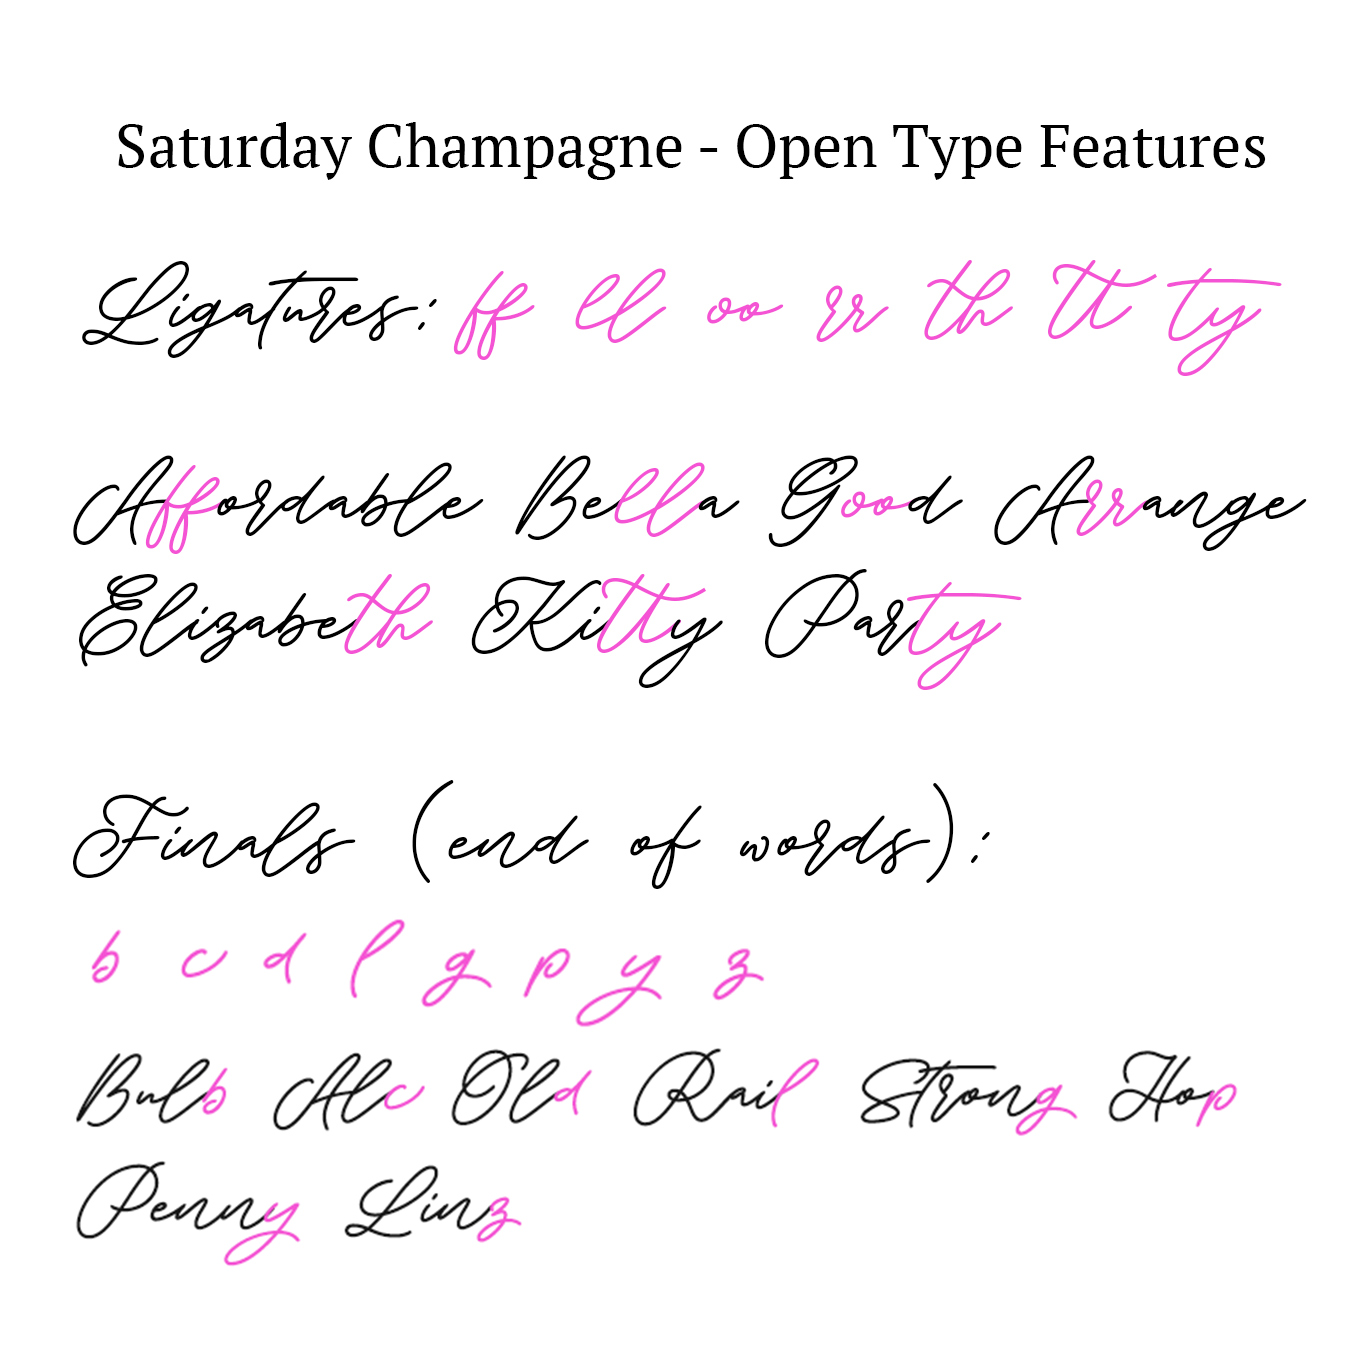 Saturday Champagne - Open Type Features
Ligatures: ff ll oo rr th tt ty
Affordable Bella Good Arrange
Elizabeth Kitty Party
Finals (end of words):
b c d l g p y z
Bulb Alc Old Rail Strong Hop
Penny Linz